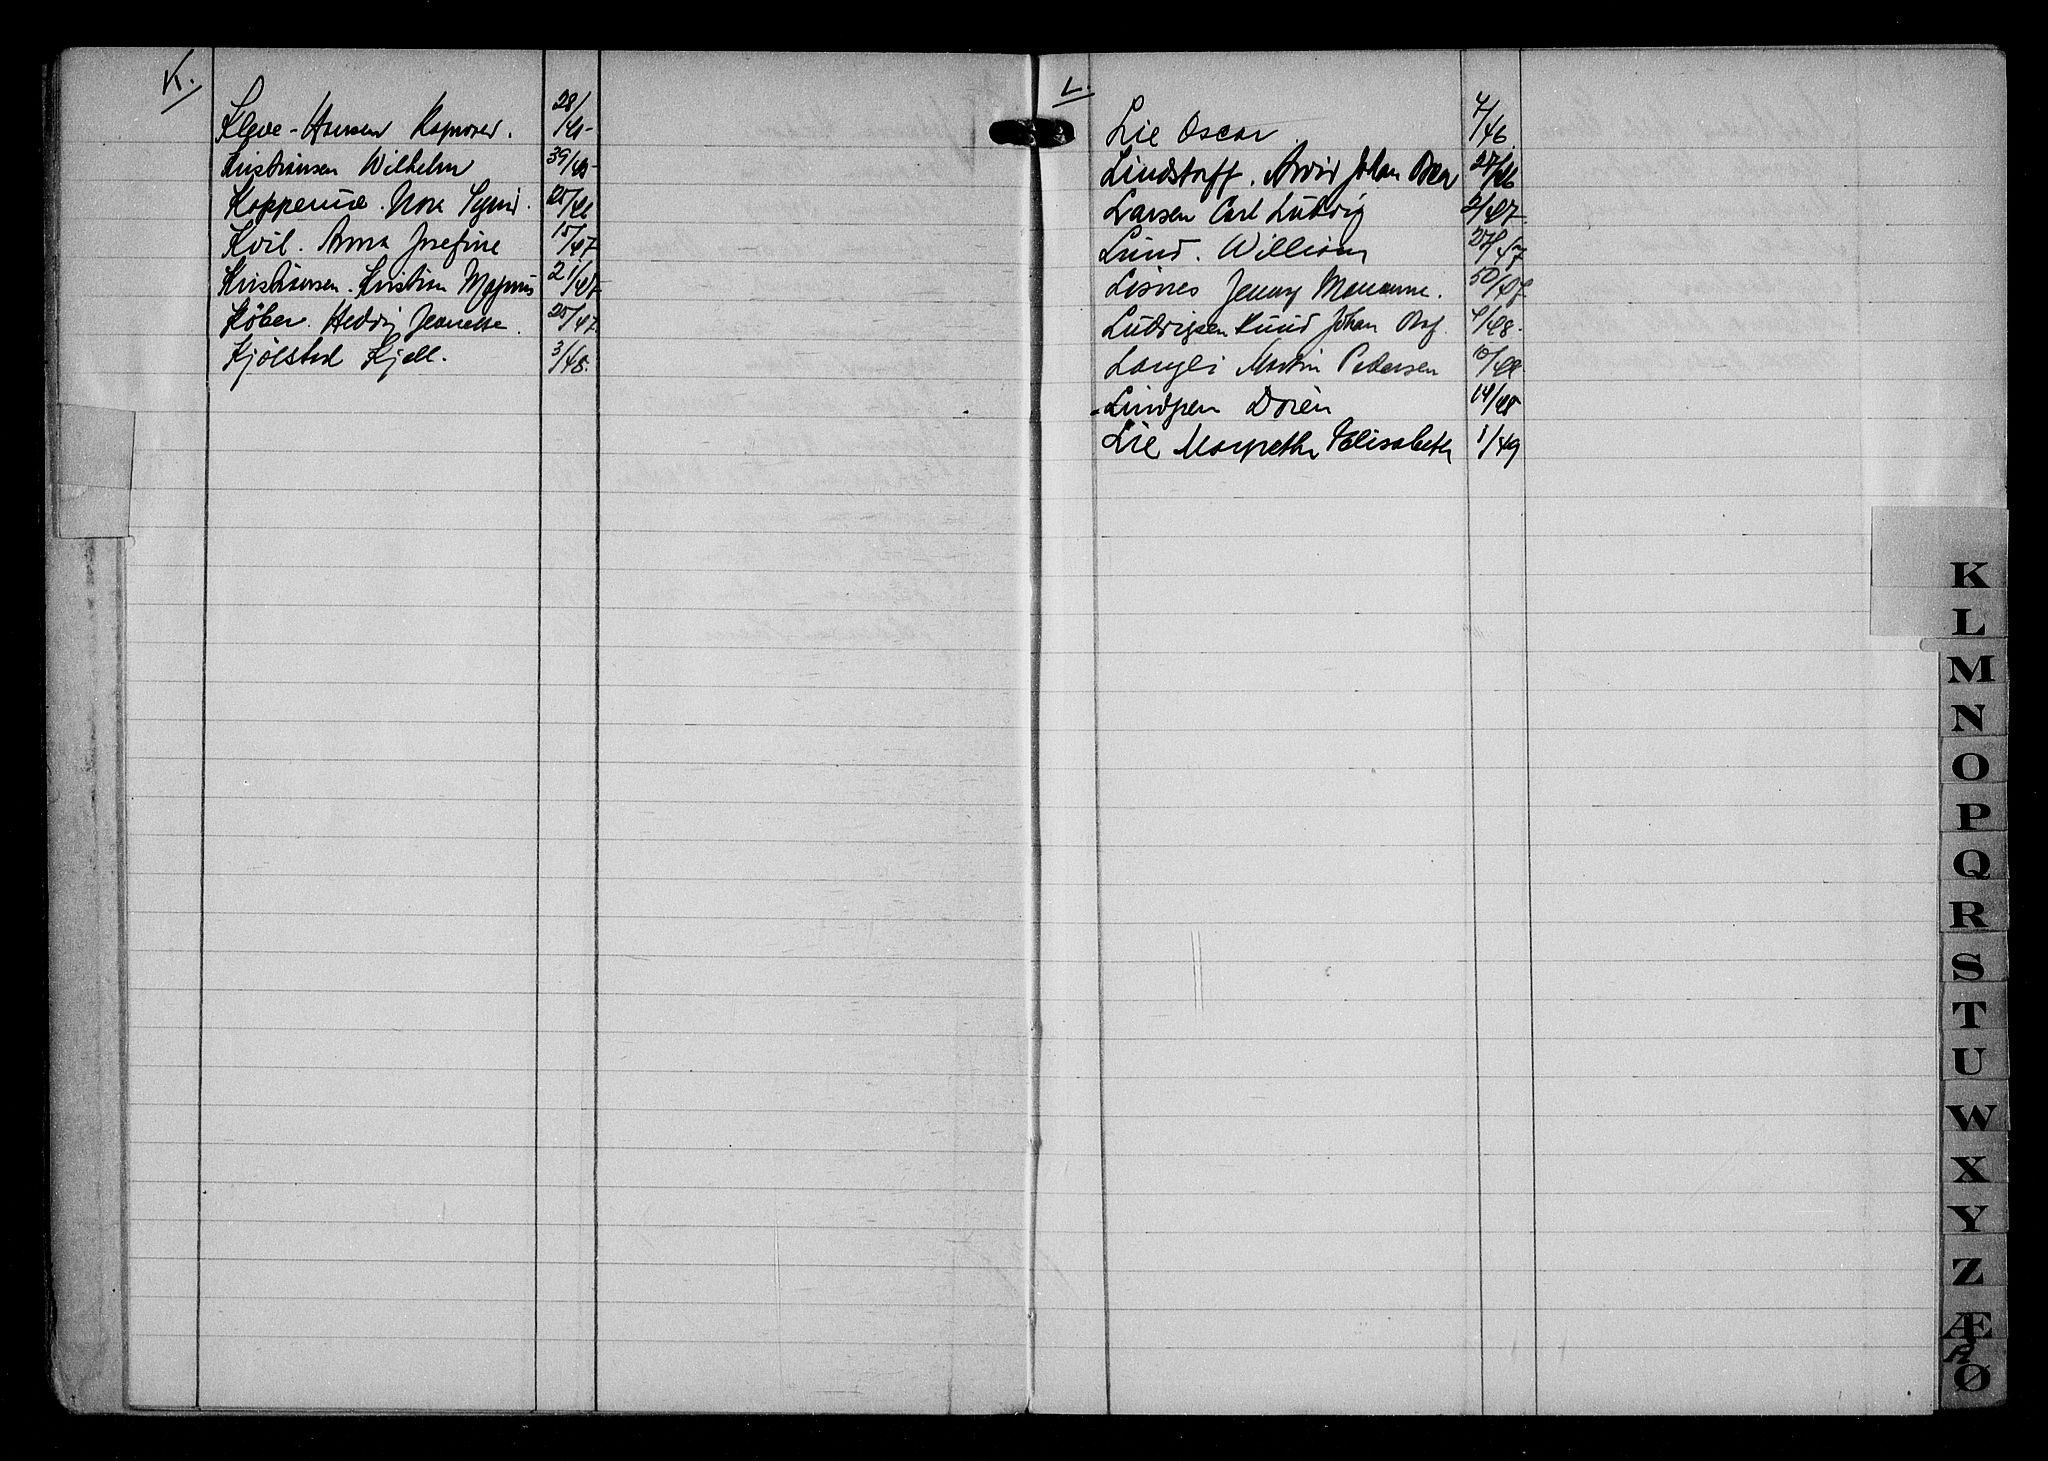 K.
Kleve-Hansen
28/
/45
Kristiansen Wilhelm
39/45
Nora
25/46
Kvil. Anna Josefine
15/47
Kristiansen. Kristian Magnus
21/47
Köber. Hedvig Jeanette.
25/47
Kjölstad Kjell.
3/48.
L.
Lie Oscar
7/46
Lindstaff. Arvid Johan
27/46
Larsen Carl Ludvig
2/47
Lund. William
27/47
Lisnes Jenny Marianne.
50/47
Ludvigsen Knud Johan
4/48.
Langli Martin Pedersen
10/48
Doren
14/48
Lie Margrethe Elisabeth
1/49
K
L
M
N
O
P
Q
R
S
T
U
W
X
Y
Z
Æ
Ø